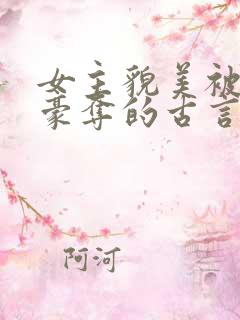 女主貌美被
豪夺的古言
阿河